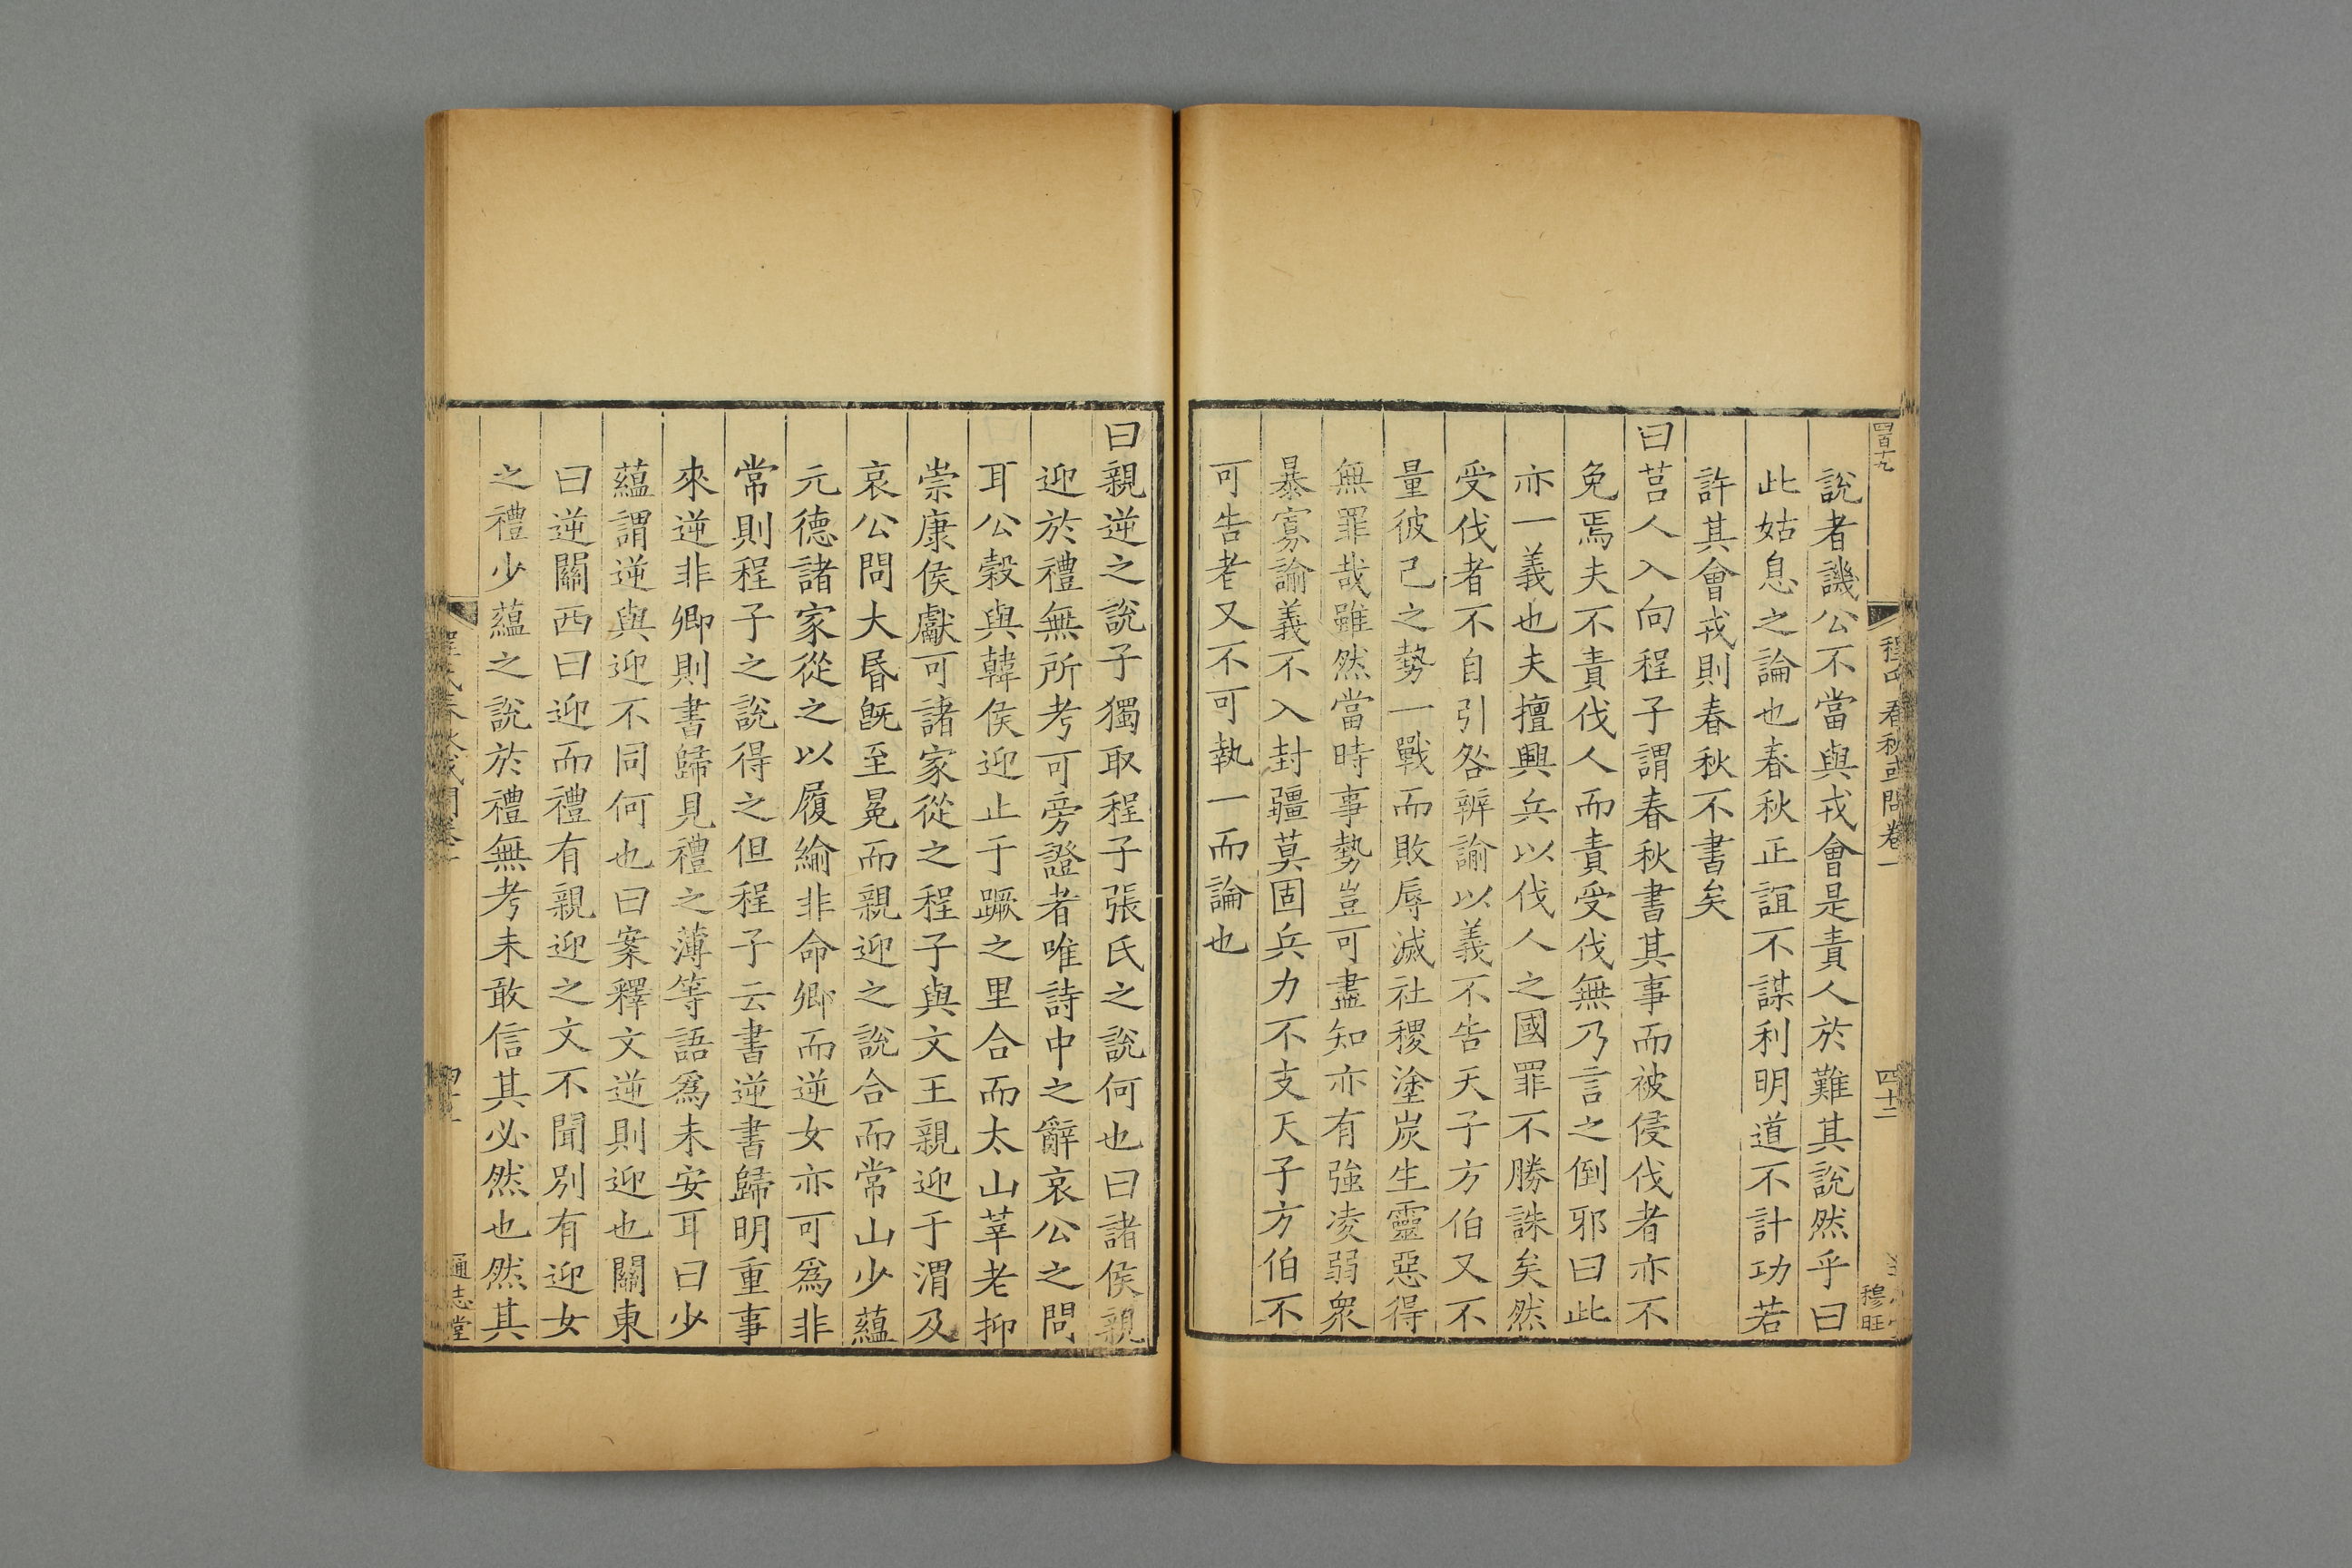 四百十九
程氏春秋或問卷一
四十二
穆旺
說者譏公不當與戎會是責人於難其說然乎曰
此姑息之論也春秋正誼不謀利明道不計功若
許其會戎則春秋不書矣
曰莒人入向程子謂春秋書其事而被侵伐者亦不
免焉夫不責伐人而責受伐無乃言之倒邪曰此
亦一義也夫擅興兵以伐人之國罪不勝誅矣然
受伐者不自引咎辨諭以義不告天子方伯又不
量彼己之勢一戰而敗辱滅社稷塗炭生靈惡得
無罪哉雖然當時事勢豈可盡知亦有強凌弱衆
暴寡諭義不入封疆莫固兵力不支天子方伯不
可告者又不可執一而論也
曰親逆之說子獨取程子張氏之說何也曰諸侯親
迎於禮無所考可旁證者唯詩中之辭哀公之問
耳公穀與韓侯迎止于蹶之里合而太山莘老抑
崇康侯獻可諸家從之程子與文王親迎于渭及
哀公問大昏旣至冕而親迎之說合而常山少蘊
元德諸家從之以履緰非命卿而逆女亦可爲非
常則程子之說得之但程子云書逆書歸明重事
來逆非卿則書歸見禮之薄等語爲未安耳曰少
蘊謂逆與迎不同何也曰案釋文逆則迎也關東
曰逆關西曰迎而禮有親迎之文不聞別有迎女
之禮少蘊之說於禮無考未敢信其必然也然其
通志堂